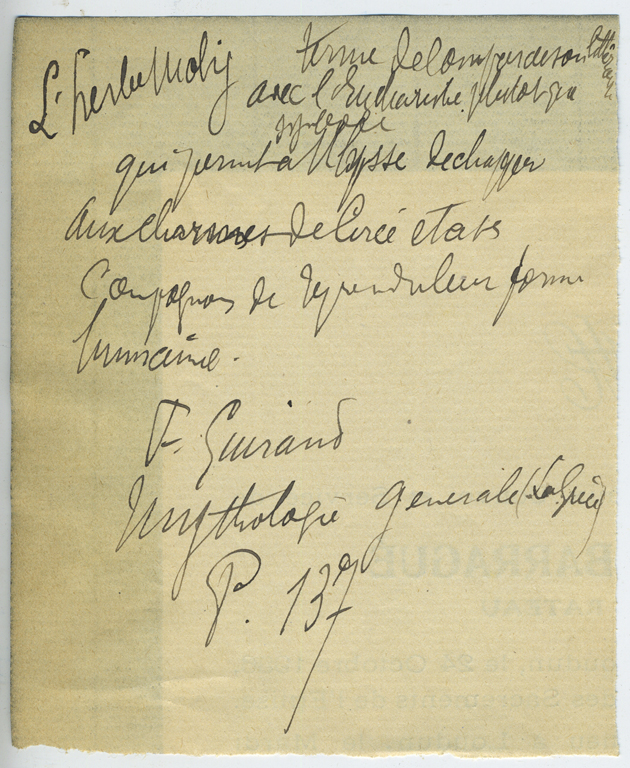 L'herbe Moly
terme de comparaison littéraire
avec l'Eucharistie
qui permit à Ulysse d'échapper
aux charmes de Circé et à ses
Compagnons de reprendre leur forme
humaine.
F. Guirand
Mythologie générale (La Grèce)
P. 137
BARRAGUE